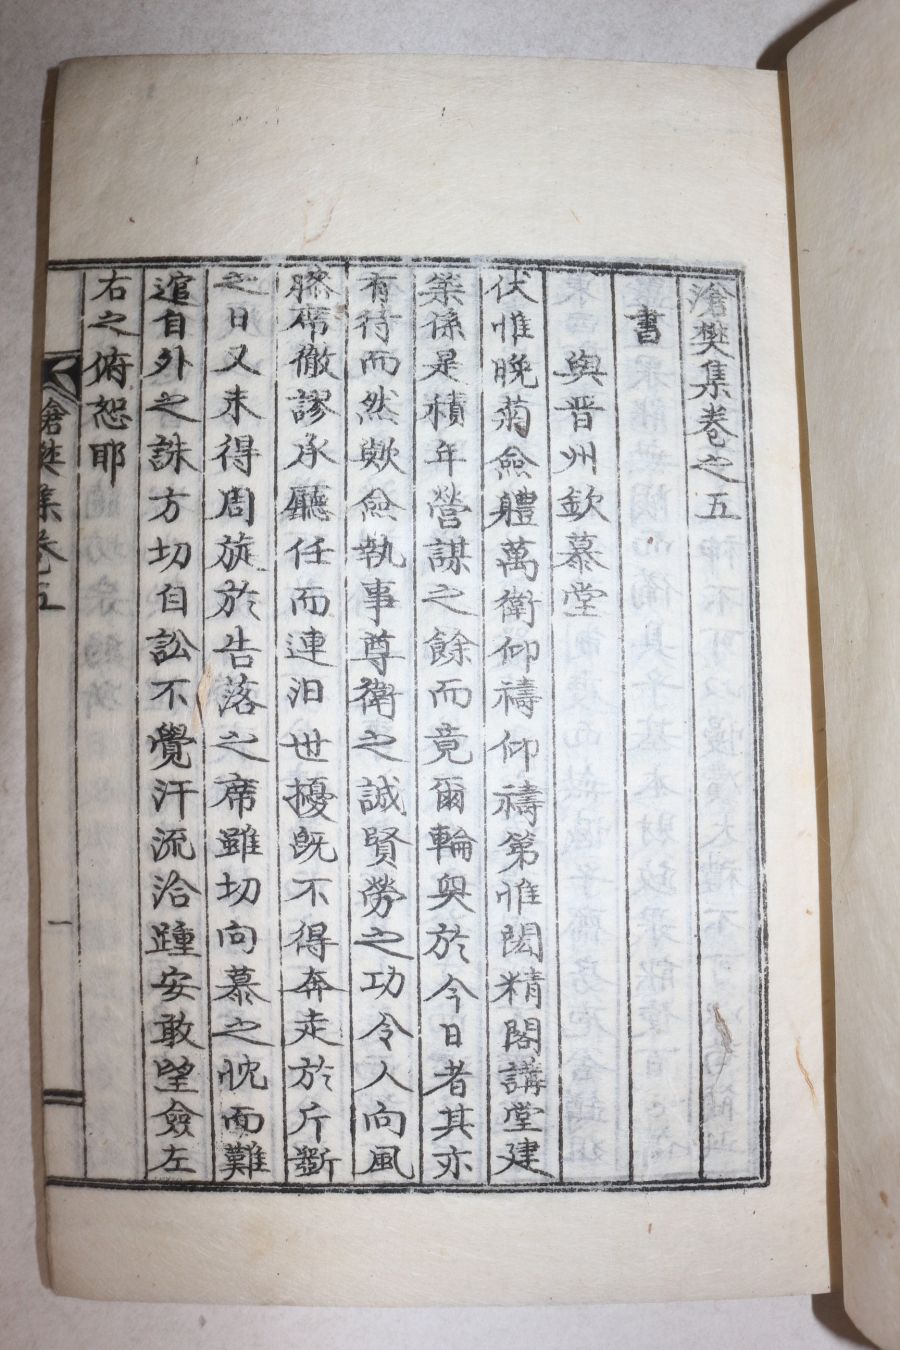 滄樊集卷之五
書
與晋州欽慕堂
伏惟晚菊僉軆萬衛仰禱仰禱第惟閎精閣講堂建
築係是積年營謀之餘而竟爾輪奐於今日者其亦
有待而然歟僉執事尊衛之誠賢勞之功令人向風
膝席徹謬承廳任而連汨世擾旣不得奔走於斤斲
之日又未得周旋於告落之席雖切向慕之忱而難
逭自外之誅方切自訟不覺汗流洽踵安敢望僉左
右之俯恕耶
滄樊集卷五
一